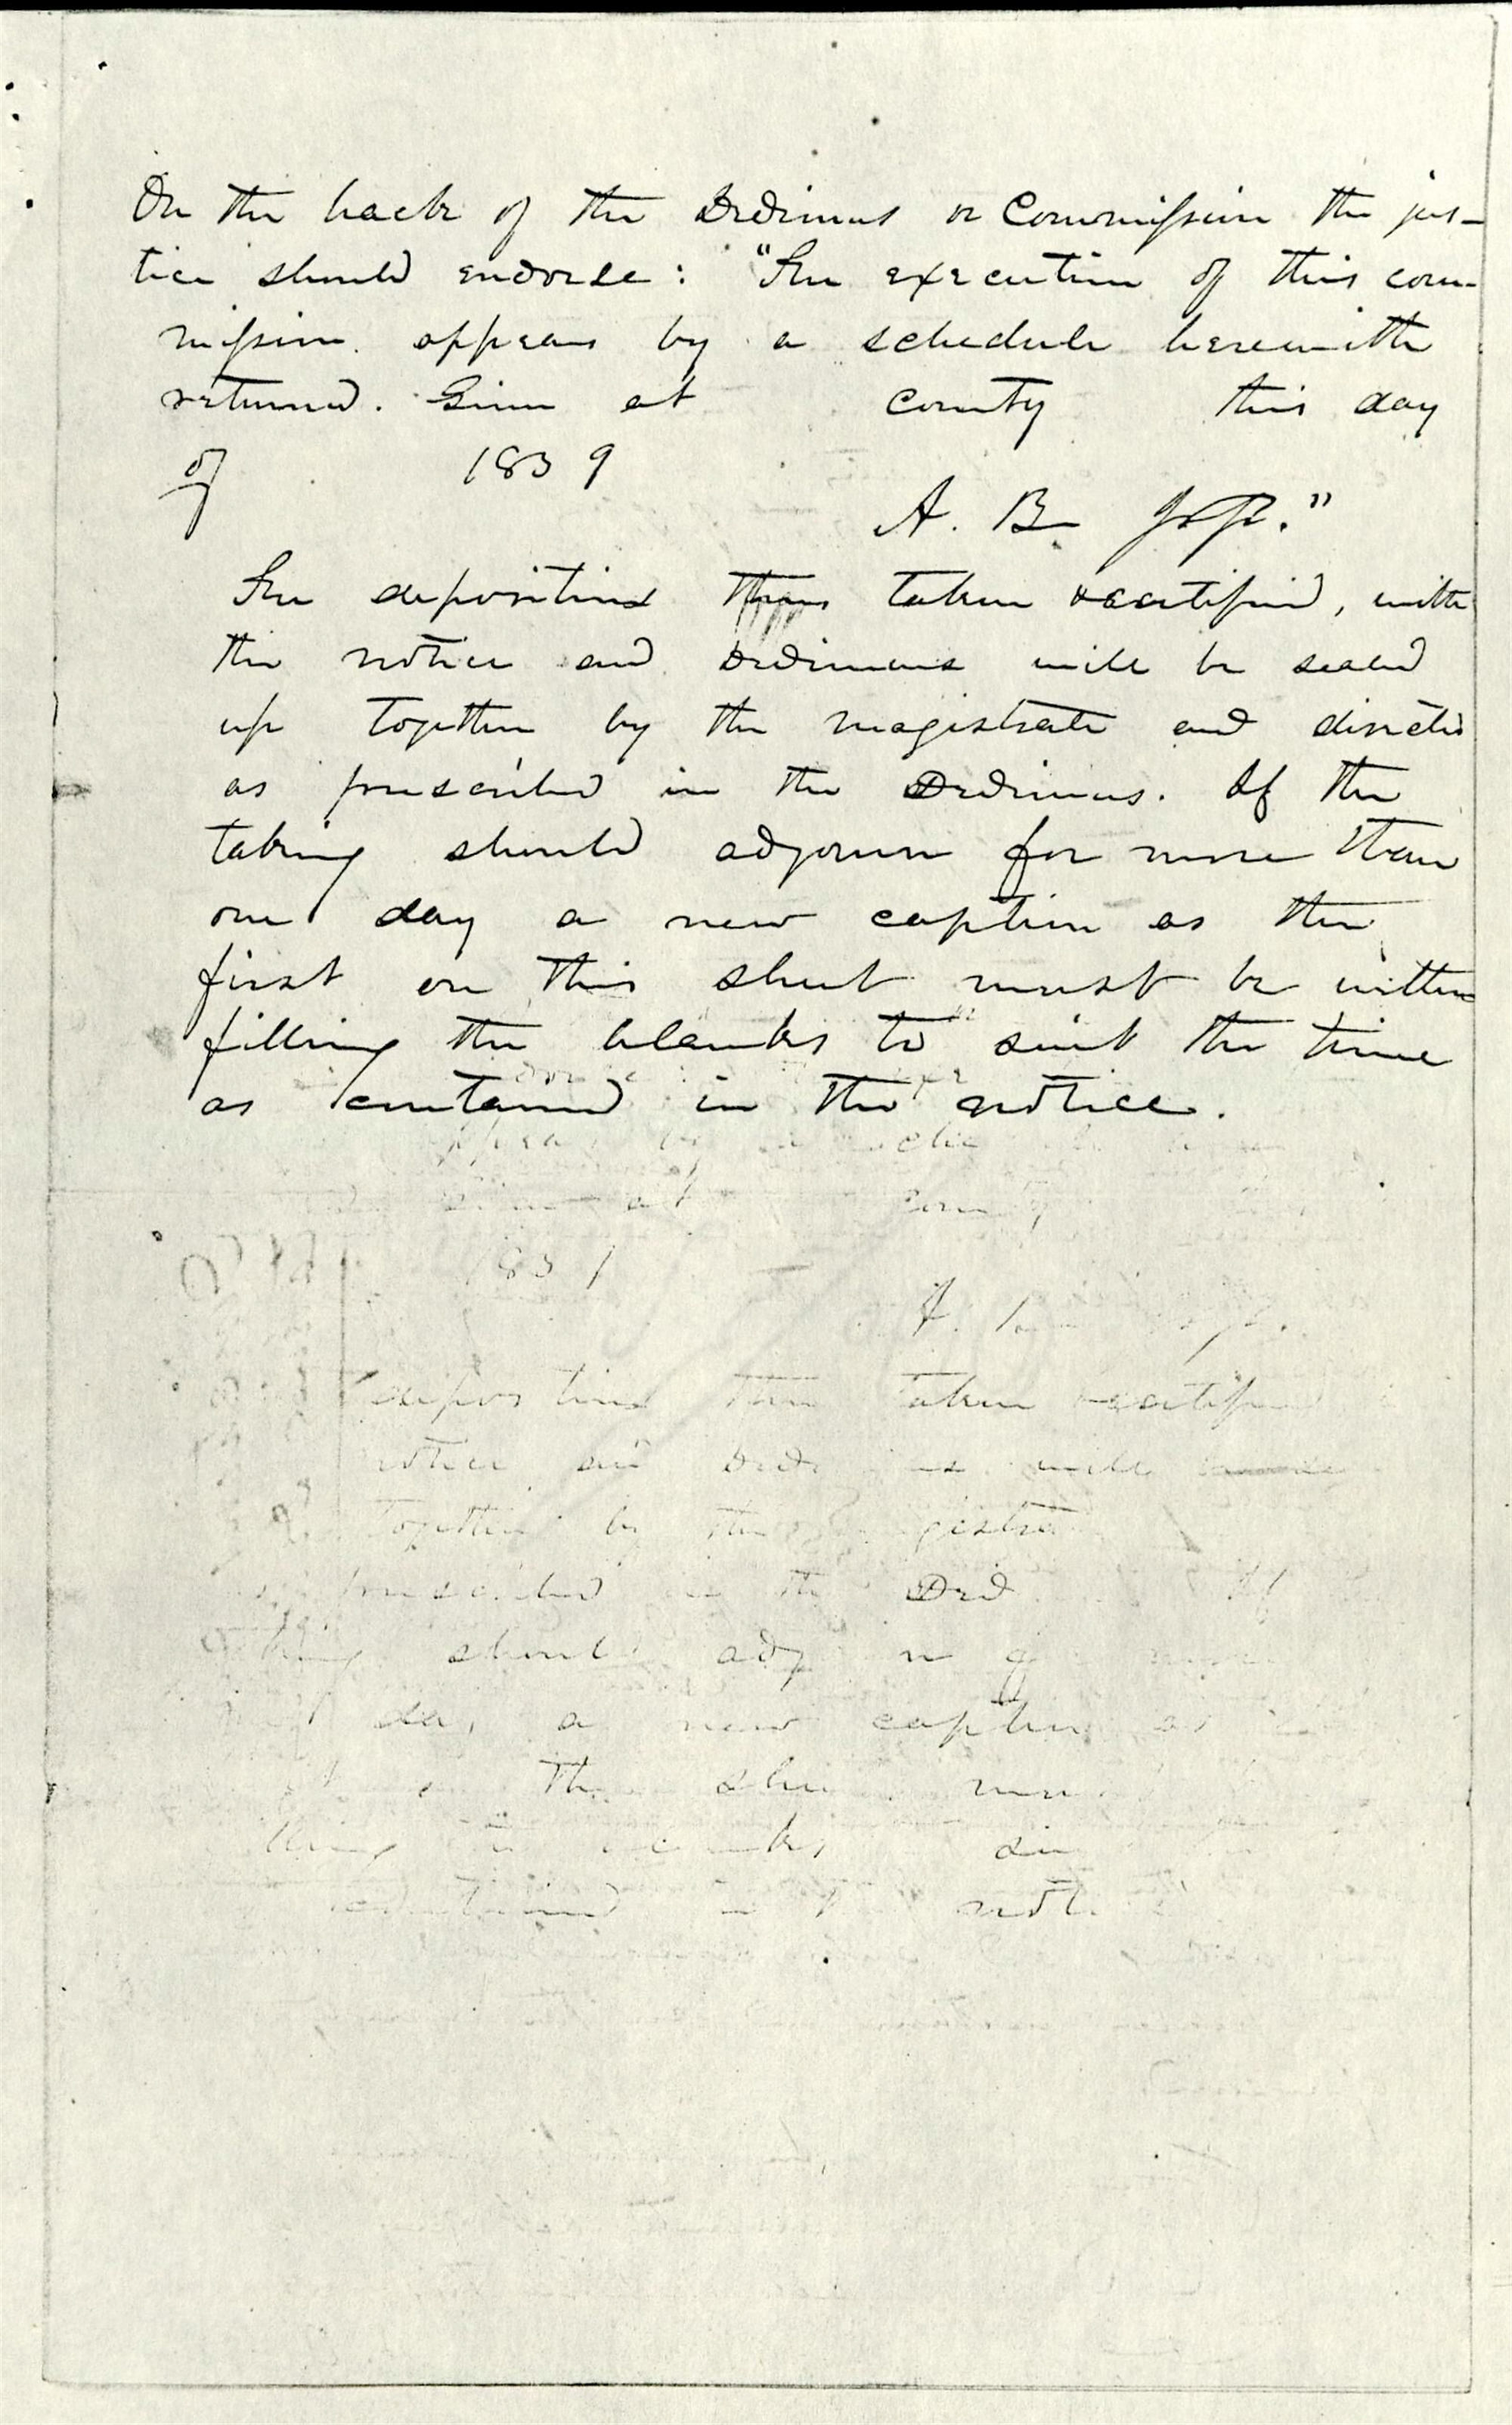 On the back of the Dedimus or Commission the jus-
tice should endorse: "The execution of this com-
mission appears by a schedule herewith
returned. Given at county this day
of 1839
A. B. J.P."
The depositions thus taken & certified, with
the notice and Dedimus will be sealed
up together by the magistrate and directed
as prescribed in the Dedimus. If the
taking should adjourn for more than
one day a new caption as the
first on this sheet must be written
filling the blanks to suit the time
as contained in the notice.